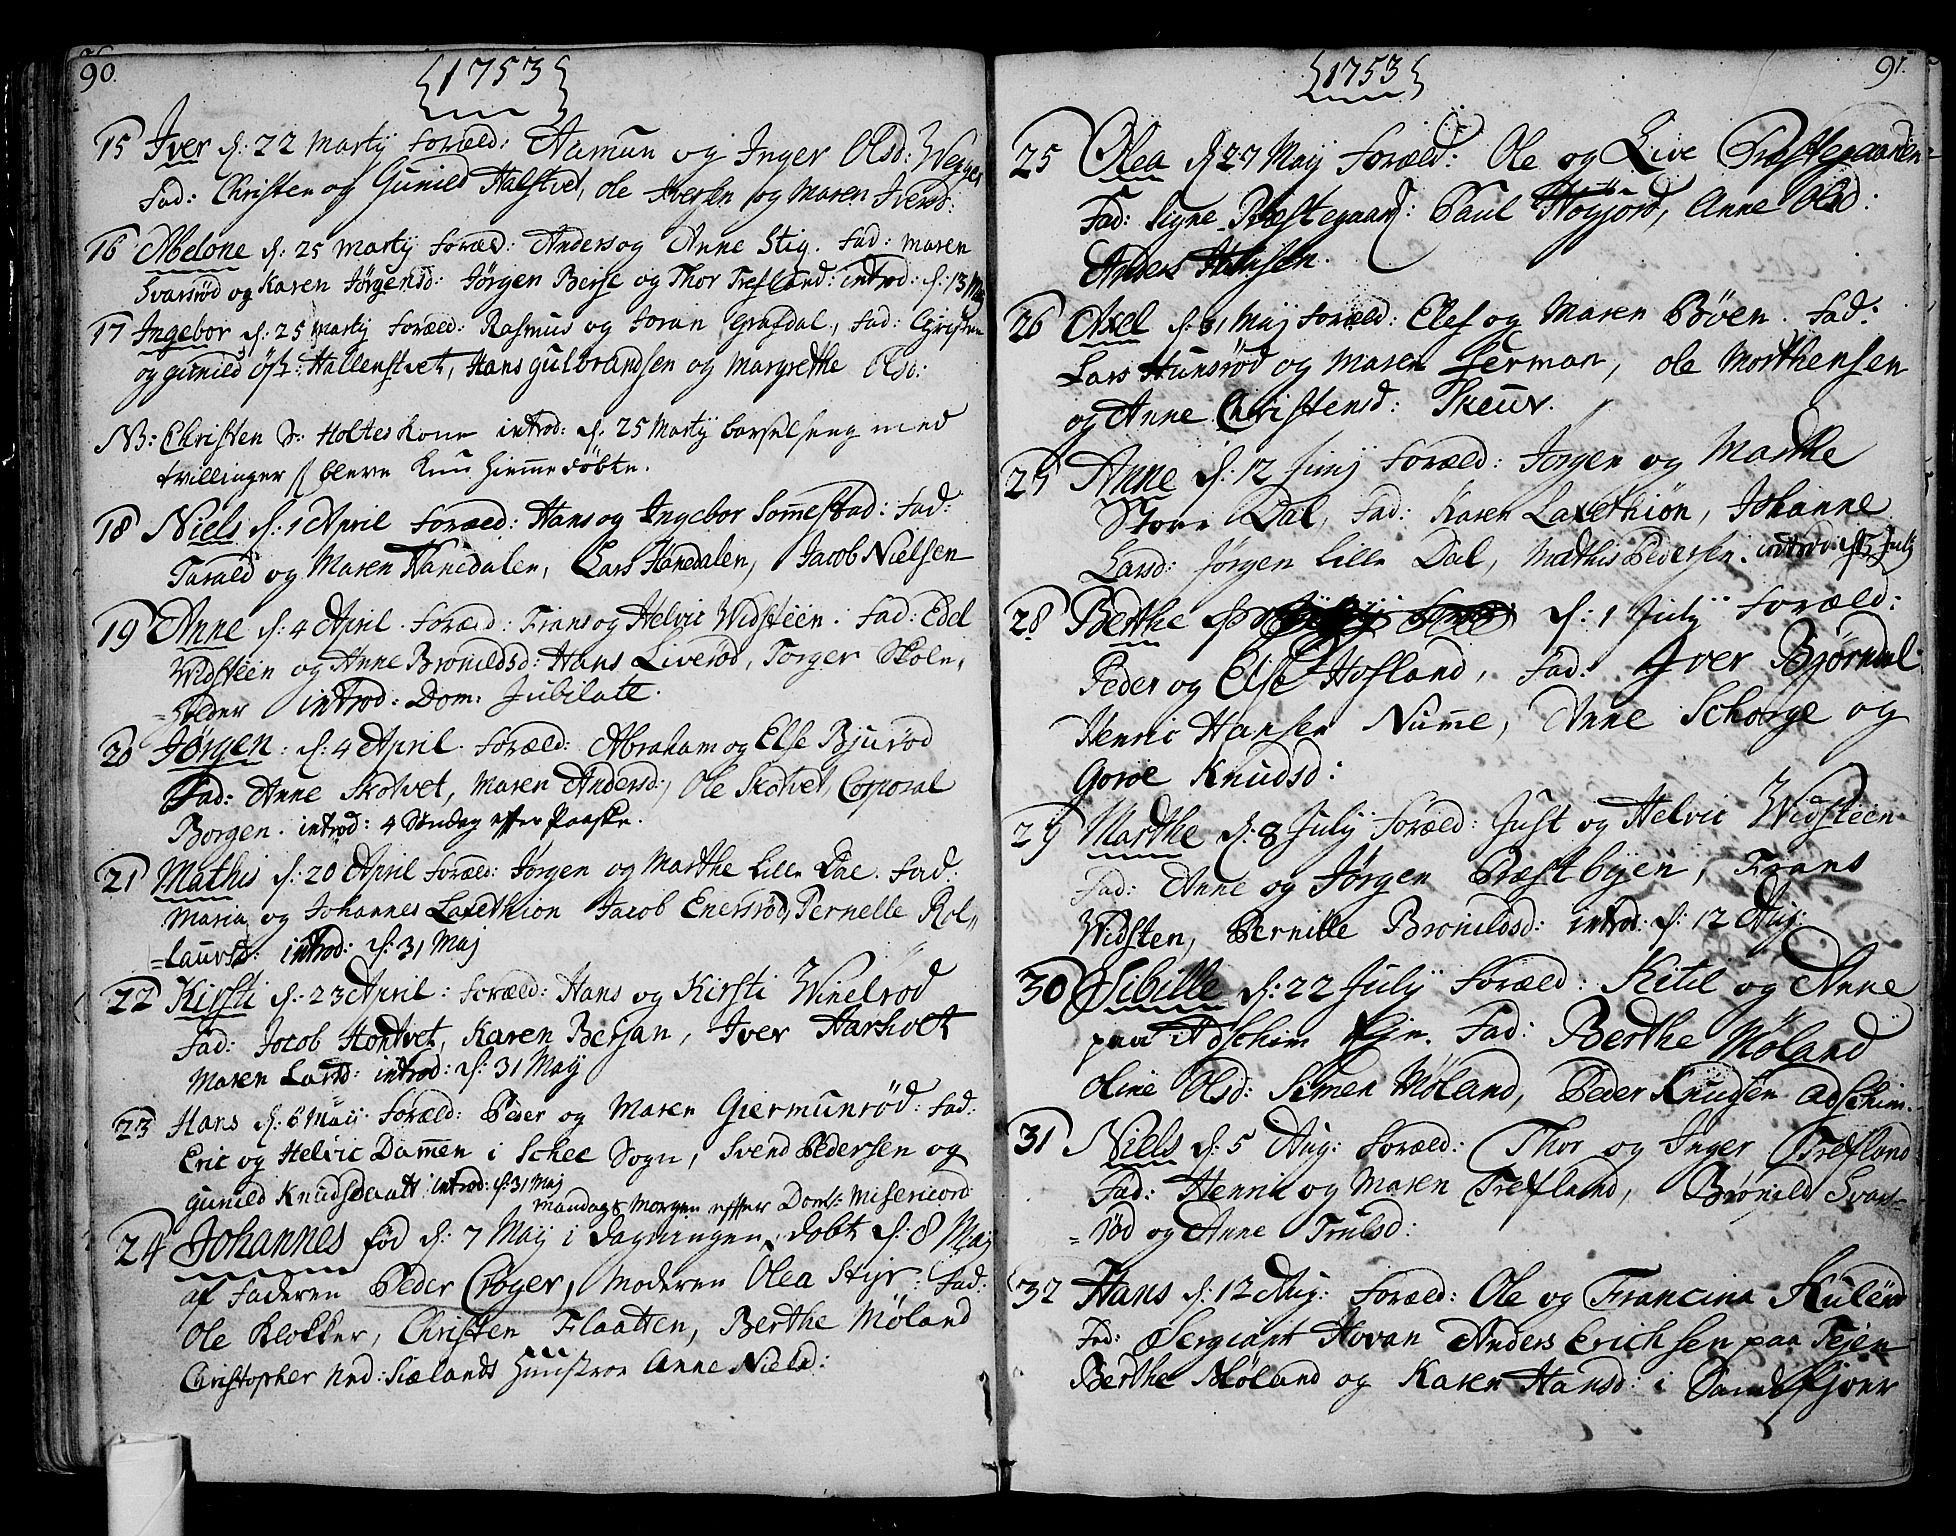 90.
1753
15 Iver d: 22 Martij foræld: Aamun og Inger Olsd:
Fad: Christen og Gunild Halstvet, ole Iversen og Maren Iversd:
16 Abelone d: 25 Martij foræld: Anders og Anne Stig. Fad: Maren
Svarsrød og Karen Jørgensd: Jørgen Berse og Thor Trefland: introd: d: 13 Maj
17 Ingebor d: 25 Martij foræld: Rasmus og Joran Grafdal, Fad: Christen
og Gunild Hallenstvet, Hans Gulbrandsen og Margrethe Olsd:
NB: Christen Holtes Kone introd: d: 25 Martij barselseng med
tvillinger bleve Kun hiemmedöbte.
18 Niels d: 1 April foræld: Hans og Ingebor Sommestad: Fad:
Tarald og Maren Hanedalen, Lars Hanedalen, Jacob Nielsen
19 Anne d: 4 April. foræld: Frans og Helvic Widsteen. Fad: Edel
Widsteen og Anne Bronildsd: Hans Liverød, Torger Skole-
=holder introd: Dom: Jubilate.
20 Jørgen: d: 4 April. foræld: Abraham og Else Bjurød
Fad: Anne Skotvet, Maren Andersd:, Ole Skotvet, Corporal
Borgen. introd: 4 Søndag efter Paaske.
21 Mathis d: 20 April foræld: Jørgen og Marthe Lille Dal. Fad:
Maria og Johannes Laxethion Jacob Enersrød, Pernelle Rol=
=Laursd: introd: d: 31 Maj
22 Kirsti d: 23 April: foræld: Hans og Kirsti Winelrød
Fad: Jocob Hontvet, Karen Berjan, Iver Aarholt
Maren Larsd: introd: d: 31 May
23 Hans d: 6 Maij foræld: Peder og Maren Giermunrød: Fad:
Eric og Helvic Dammen i Schee Sogn, Svend Pedersen og
Gunild Knudsdaatt: introd: d: 31 Maj
Mandags Morgen effter Dom: Misericord
24 Johannes fød d: 7 Maij i dagningen, dobt d: 8 Maj
af Faderen Peder Crøger, Moderen Olea Styr: Fad:
Ole Klokker, Christen Flaatten, Berthe Møland
Christopher Ned: Siælands Huustroe Anne Nielsd:
91.
1753
25 Olea d 27 Maij Foræld: Ole og Live Præstegaarden
Fad: Signe Præstegaard: Paul Høyjord, Anne Olsd:
Anders Hansen.
26 Axel d: 31 Maj foræld: Elef og Maren Bøen. Fad:
Lars Hunsrød og Maren Herman, ole Morthensen
og Anne Christensd: Skeuv.
27 Anne d: 12 Junj foræld: Jørgen og Marthe
Store Dal, Fad: Karen Laxethiön, Johanne
Larsd: Jørgen Lille Dal, Mathis Pedersen. introd: d: 15 July
28 Berthe d: 1 July foræld:
Peder og Else Hofland, Fad: Iver Bjørndal
Henric Hansen Numme, Anne Schorge og
Goroe Knudsd:
29 Marthe d: 8 July foræld: Just og Helvic Widsteen
Fad: Anne og Jørgen Præstbyen, Frans
Widsten, Pernille Bronildsd: introd: d: 12 Aug:
30 Sibille d: 22 Julij Foræld: Kitil og Anne
paa Adschim Ejn. Fad: Berthe Møland
Oline Olsd: Simen Møland, Peder Knudsen Adschim.
31 Niels d: 5 Aug: Foræld: Thor og Inger Trefland
Fad: Henric og Maren Trefland, Brønild Svars=
=rød og Anne Trulsd:
32 Hans d: 12 Aug: Foræld: Ole og Francina Kulerø
Fad: Sergiant Hovan Anders Erichsen paa Tejen
Berthe Møland og Karen Hansd: i Sandefjoer